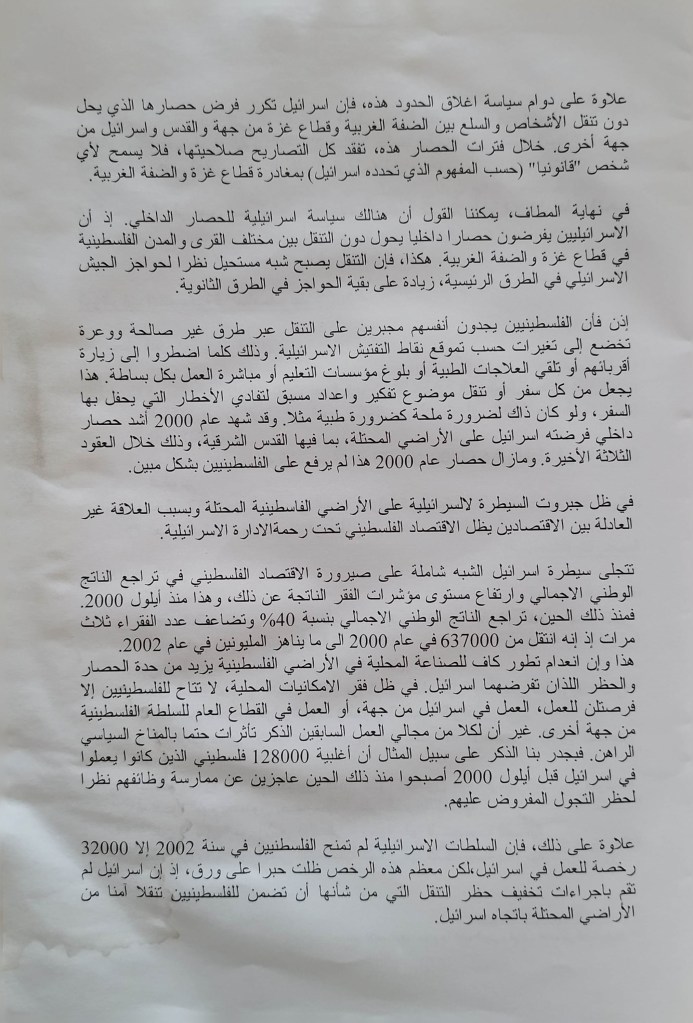 علاوة على دوام سياسة اغلاق الحدود هذه، فإن اسرائيل تكرر فرض حصارها الذي يحل
دون تنقل الأشخاص والسلع بين الضفة الغربية وقطاع غزة من جهة والقدس واسرائيل من
جهة أخرى. خلال فترات الحصار هذه، تفقد كل التصاريح صلاحيتها، فلا يسمح لأي
شخص "قانونيا" (حسب المفهوم الذي تحدده اسرائيل) بمغادرة قطاع غزة والضفة الغربية.
في نهاية المطاف، يمكننا القول أن هنالك سياسة اسرائيلية للحصار الداخلي. إذ أن
الاسرائيليين يفرضون حصارا داخليا يحول دون التنقل بين مختلف القرى والمدن الفلسطينية
في قطاع غزة والضفة الغربية. هكذا، فإن التنقل يصبح شبه مستحيل نظرا لحواجز الجيش
الاسرائيلي في الطرق الرئيسية، زيادة على بقية الحواجز في الطرق الثانوية.
إذن فأن الفلسطينيين يجدون أنفسهم مجبرين على التنقل عبر طرق غير صالحة ووعرة
تخضع إلى تغيرات حسب تموقع نقاط التفتيش الاسرائيلية. وذلك كلما اضطروا إلى زيارة
أقربائهم أو تلقي العلاجات الطبية أو بلوغ مؤسسات التعليم أو مباشرة العمل بكل بساطة. هذا
يجعل من كل سفر أو تنقل موضوع تفكير واعداد مسبق لتفادي الأخطار التي يحفل بها
السفر، ولو كان ذاك لضرورة ملحة كضرورة طبية مثلا. وقد شهد عام 2000 أشد حصار
داخلي فرضته اسرائيل على الأراضي المحتلة، بما فيها القدس الشرقية، وذلك خلال العقود
الثلاثة الأخيرة. ومازال حصار عام 2000 هذا لم يرفع على الفلسطينيين بشكل مبين.
في ظل جبروت السيطرة لالسرائيلية على الأراضي الفاسطينية المحتلة وبسبب العلاقة غير
العادلة بين الاقتصادين يظل الاقتصاد الفلسطيني تحت رحمةالادارة الاسرائيلية.
تتجلى سيطرة اسرائيل الشبه شاملة على صيرورة الاقتصاد الفلسطيني في تراجع الناتج
الوطني الاجمالي وارتفاع مستوى مؤشرات الفقر الناتجة عن ذلك، وهذا منذ أيلول 2000.
فمنذ ذلك الحين، تراجع الناتج الوطني الاجمالي بنسبة 40% وتضاعف عدد الفقراء ثلاث
مرات إذ إنه انتقل من 637000 في عام 2000 الى ما يناهز المليونين في عام 2002.
هذا وإن انعدام تطور كاف للصناعة المحلية في الأراضي الفلسطينية يزيد من حدة الحصار
والحظر اللذان تفرضهما اسرائيل. في ظل فقر الامكانيات المحلية، لا تتاح للفلسطينيين إلا
فرصتلن للعمل، العمل في اسرائيل من جهة، أو العمل في القطاع العام للسلطة الفلسطينية
من جهة أخرى. غير أن لكلا من مجالي العمل السابقين الذكر تأثرات حتما بالمناخ السياسي
الراهن. فبجدر بنا الذكر على سبيل المثال أن أغلبية 128000 فلسطيني الذين كانوا يعملوا
في اسرائيل قبل أيلول 2000 أصبحوا منذ ذلك الحين عاجزين عن ممارسة وظائفهم نظرا
لحظر التجول المفروض عليهم.
علاوة على ذلك، فإن السلطات الاسرائيلية لم تمنح الفلسطنيين في سنة 2002 إلا 32000
رخصة للعمل في اسرائيل،لكن معظم هذه الرخص ظلت حبرا على ورق، إذ إن اسرائيل لم
تقم باجراءات تخفيف حظر التنقل التي من شأنها أن تضمن للفلسطينيين تنقلا آمنا من
الأراضي المحتلة باتجاه اسرائيل.